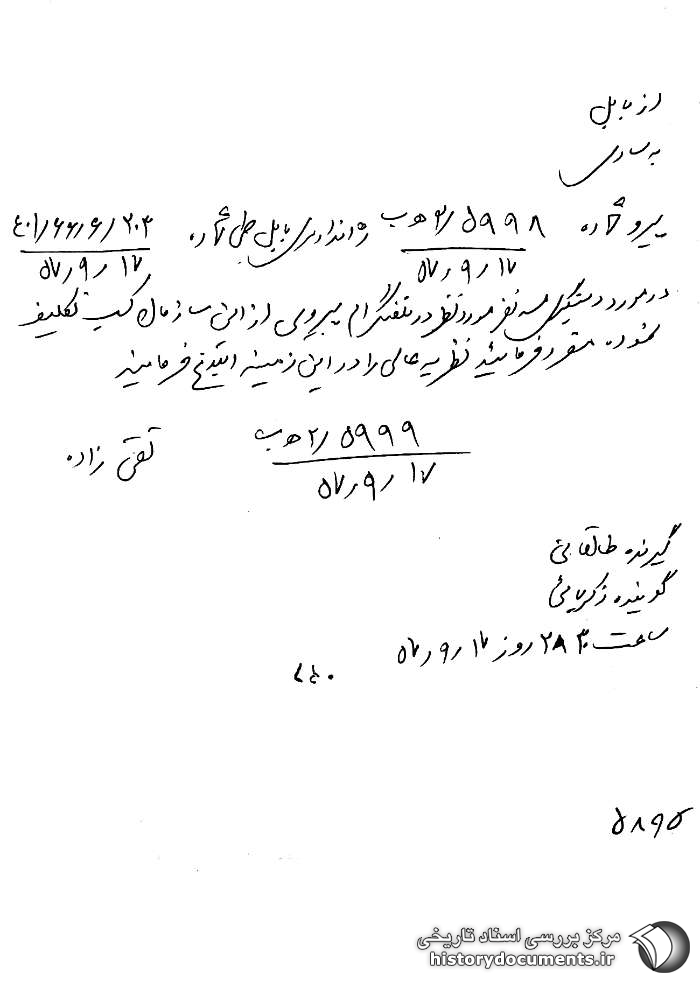 از بابل
به ساری
پیرو شماره ۲/۵۹۹۸ ه‍ ب ژاندارمری بابل طی شماره ۴۰۱/۶۶/۶/۲۰۳
۵۷/۹/۱۷ ۵۷/۹/۱۷
در مورد دستگیری سه نفر مورد نظر در تلفنگرام پیروی از این سازمان کسب تکلیف
نموده مقرر فرمائید نظریه عالی را در این زمینه ابلاغ فرمایند
۲/۵۹۹۹ ه‍ ب تقی زاده
۵۷/۹/۱۷
گیرنده طالقانی
گوینده ذکریائی
ساعت روز ۵۷/۹/۱۷
۵۸۹۵
مرکز بررسی اسناد تاریخی
historydocuments.ir